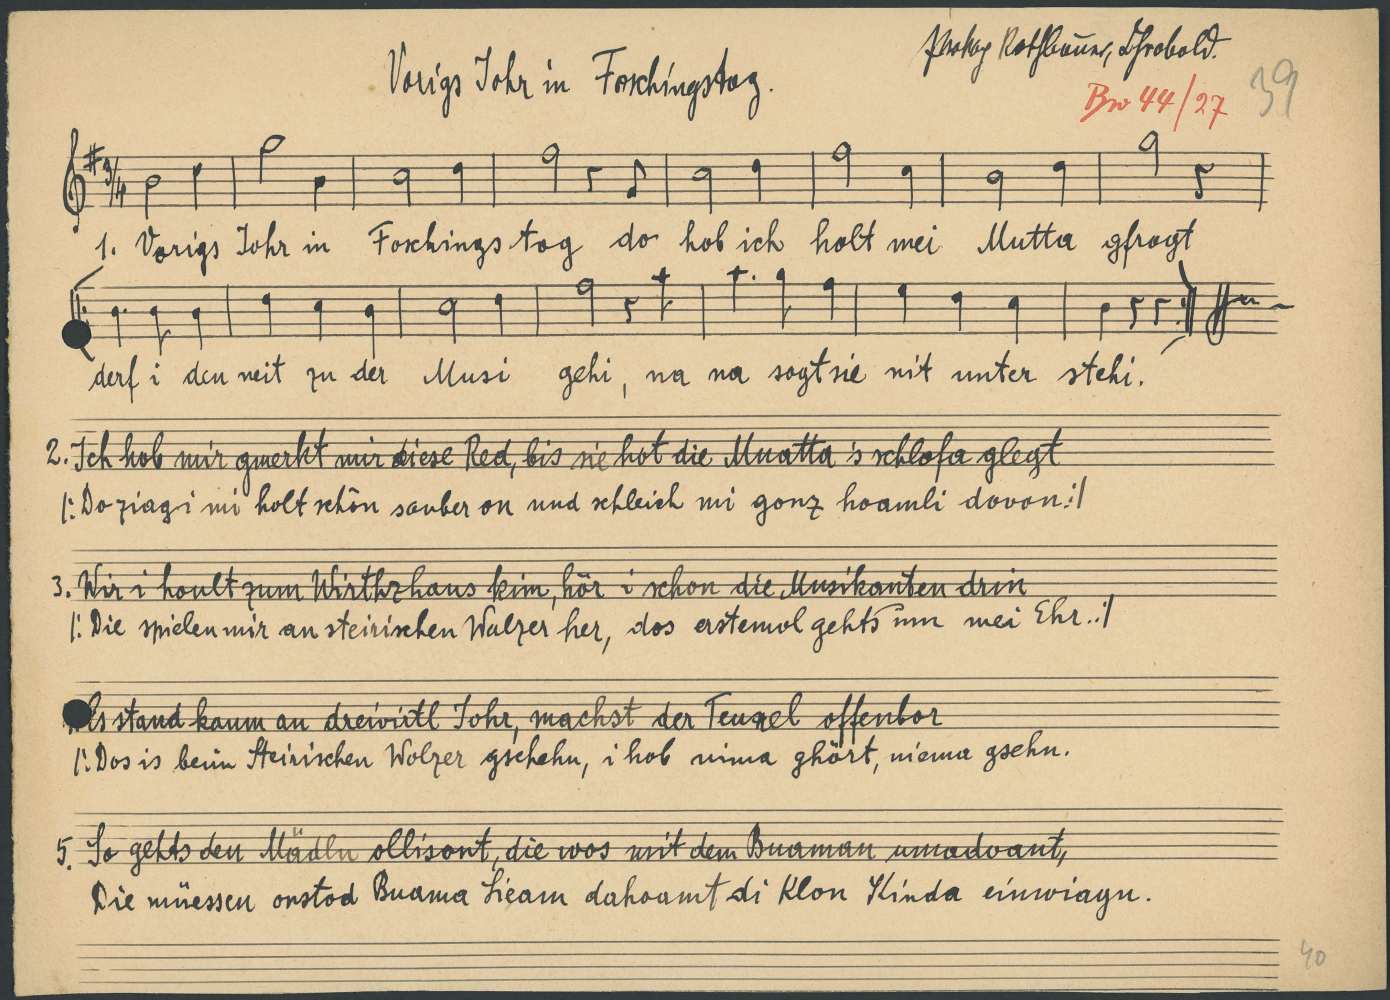 Prokop Rothbauer, Chrobold.
Vorigs Johr in Foschingstog.
Bw 44/27
39
3/4
1. Vorigs Johr in Foschingstog do hob ich holt mei Mutta gfrogt
derf i den neit zu der Musi gehi, na na sogt sie nit unter stehi.
2. Ich hob mir gmerkt mir diese Red, bis sie hot die Muatta 's schlofa glegt
|: Do ziag i mi holt schön sauber on und schleich mi gonz hoamli dovon :|
3. Wir i hoult zum Wirthzhaus kim, hör i schon die Musikanten drin
|: Die spielen mir an steirischen Walzer her, dos erstemol gehts um mei Ehr. :|
Es stand kaum an dreiviertl Johr, machst der Teuxel offenbor
|: Dos is beim Steirischen Wolzer gschehn, i hob nima ghört, niema gsehn.
5. So gehts den Mädln ollisont, die wos mit dem Buaman umadoant,
Die müessen onstod Buama Lieam dahoamt di Klon Kinda einwiagn.
40